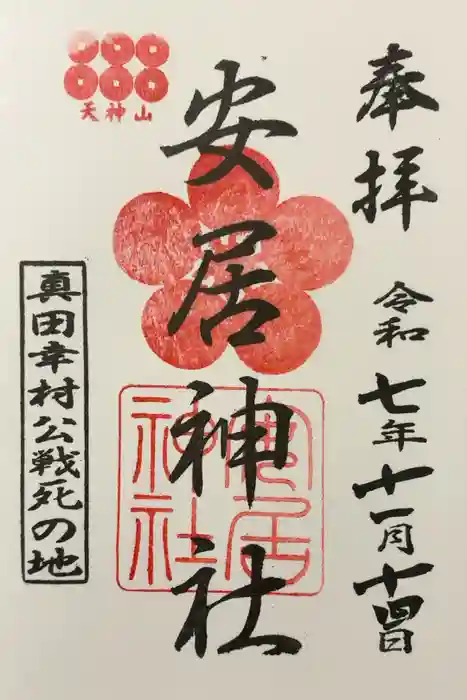 奉拝
令和七年十一月十四日
安居神社
安居神社
天神山
真田幸村公戦死の地